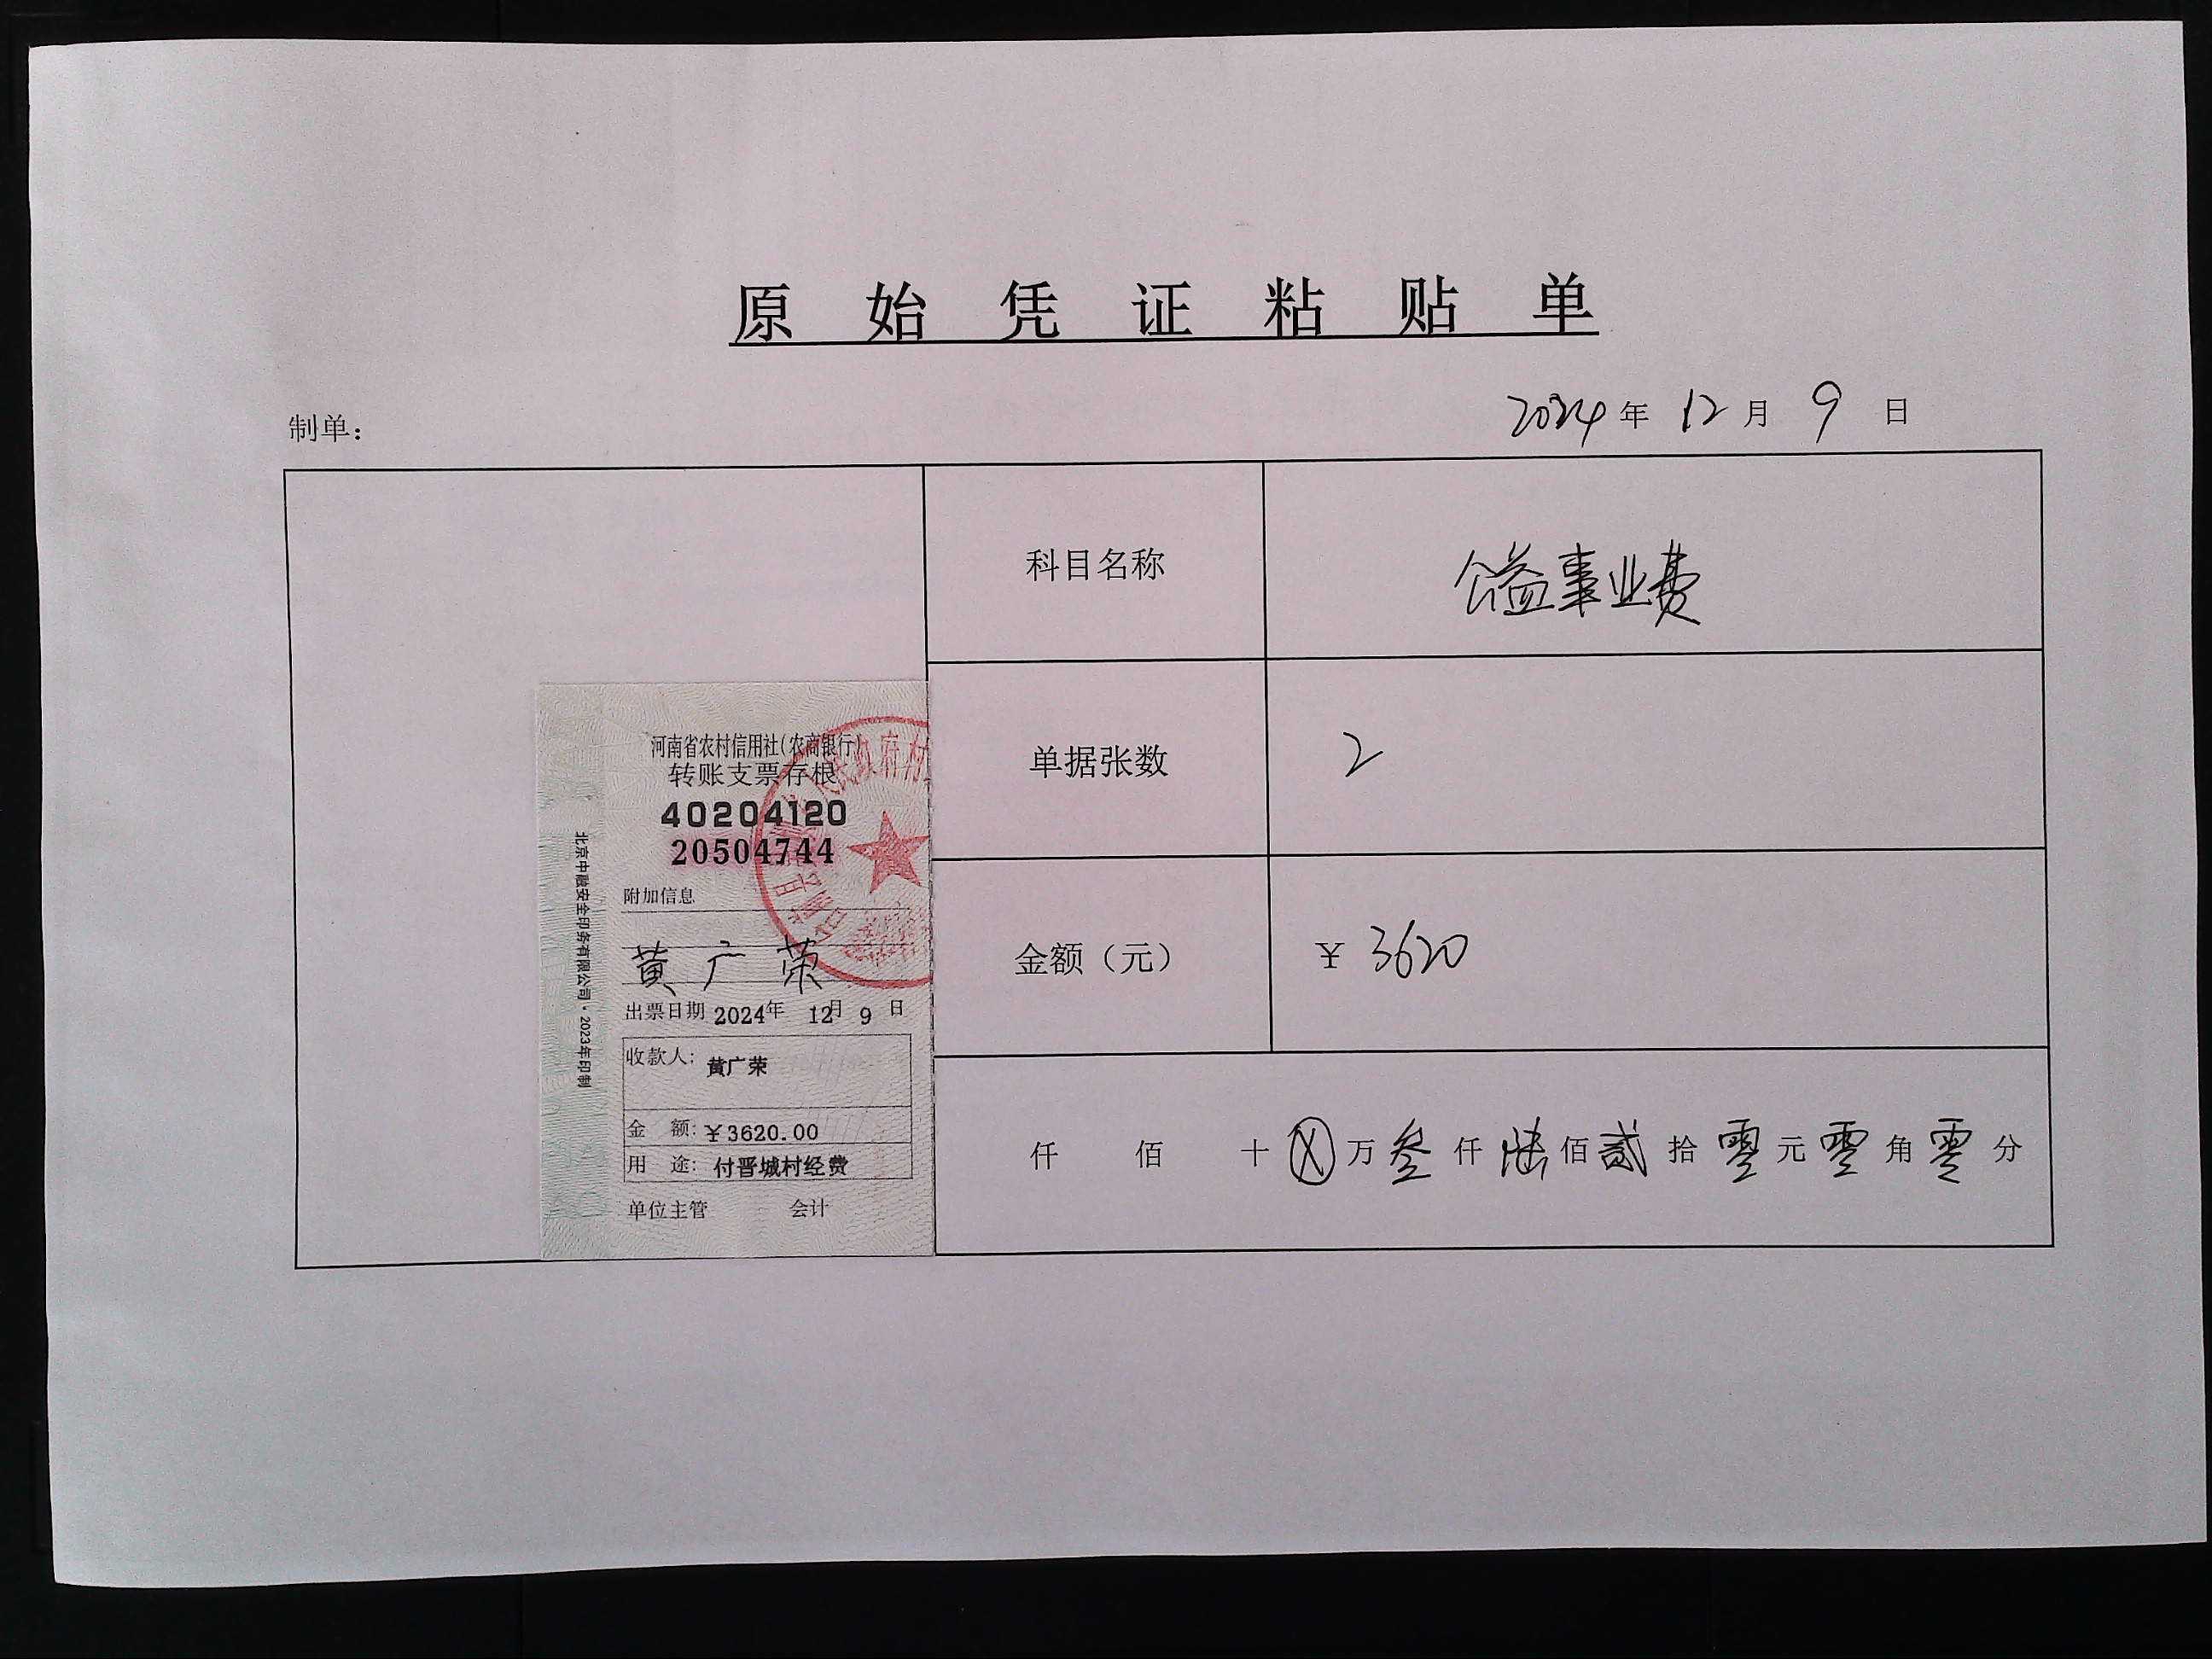 原始凭证粘贴单
制单：
2024年12月9日
科目名称 公益事业费
单据张数 2
金额（元） ¥3620
仟 佰 十ⓧ万叁仟陆佰贰拾零元零角零分
河南省农村信用社(农商银行)
转账支票存根
40204120
20504744
附加信息
黄广荣
出票日期 2024年 12月 9 日
收款人: 黄广荣
金 额: ¥3620.00
用 途: 付晋城村经费
单位主管 会计
北京中融安全印务有限公司·2023年印制